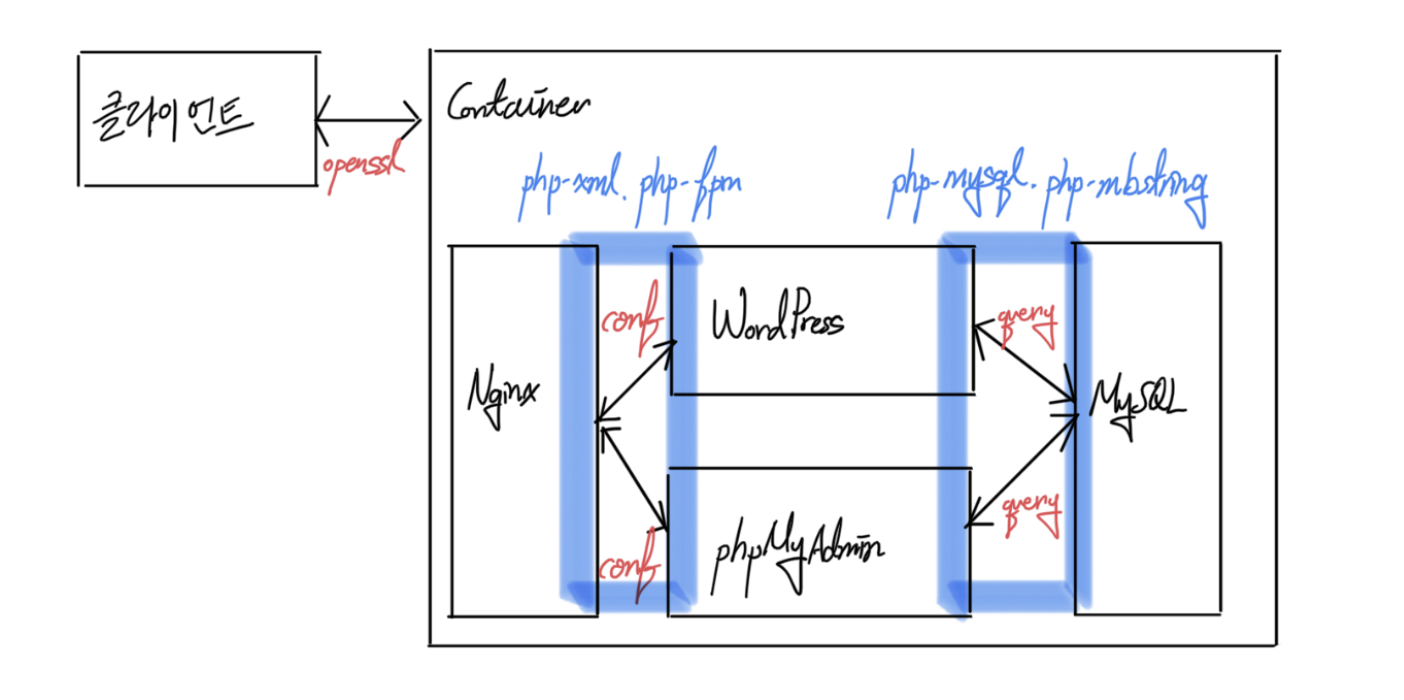 클라이언트
openssl
Container
php-xml. php-fpm
php-mysql. php-mbstring
Nginx
conf
WordPress
query
MySQL
conf
phpMyAdmin
query